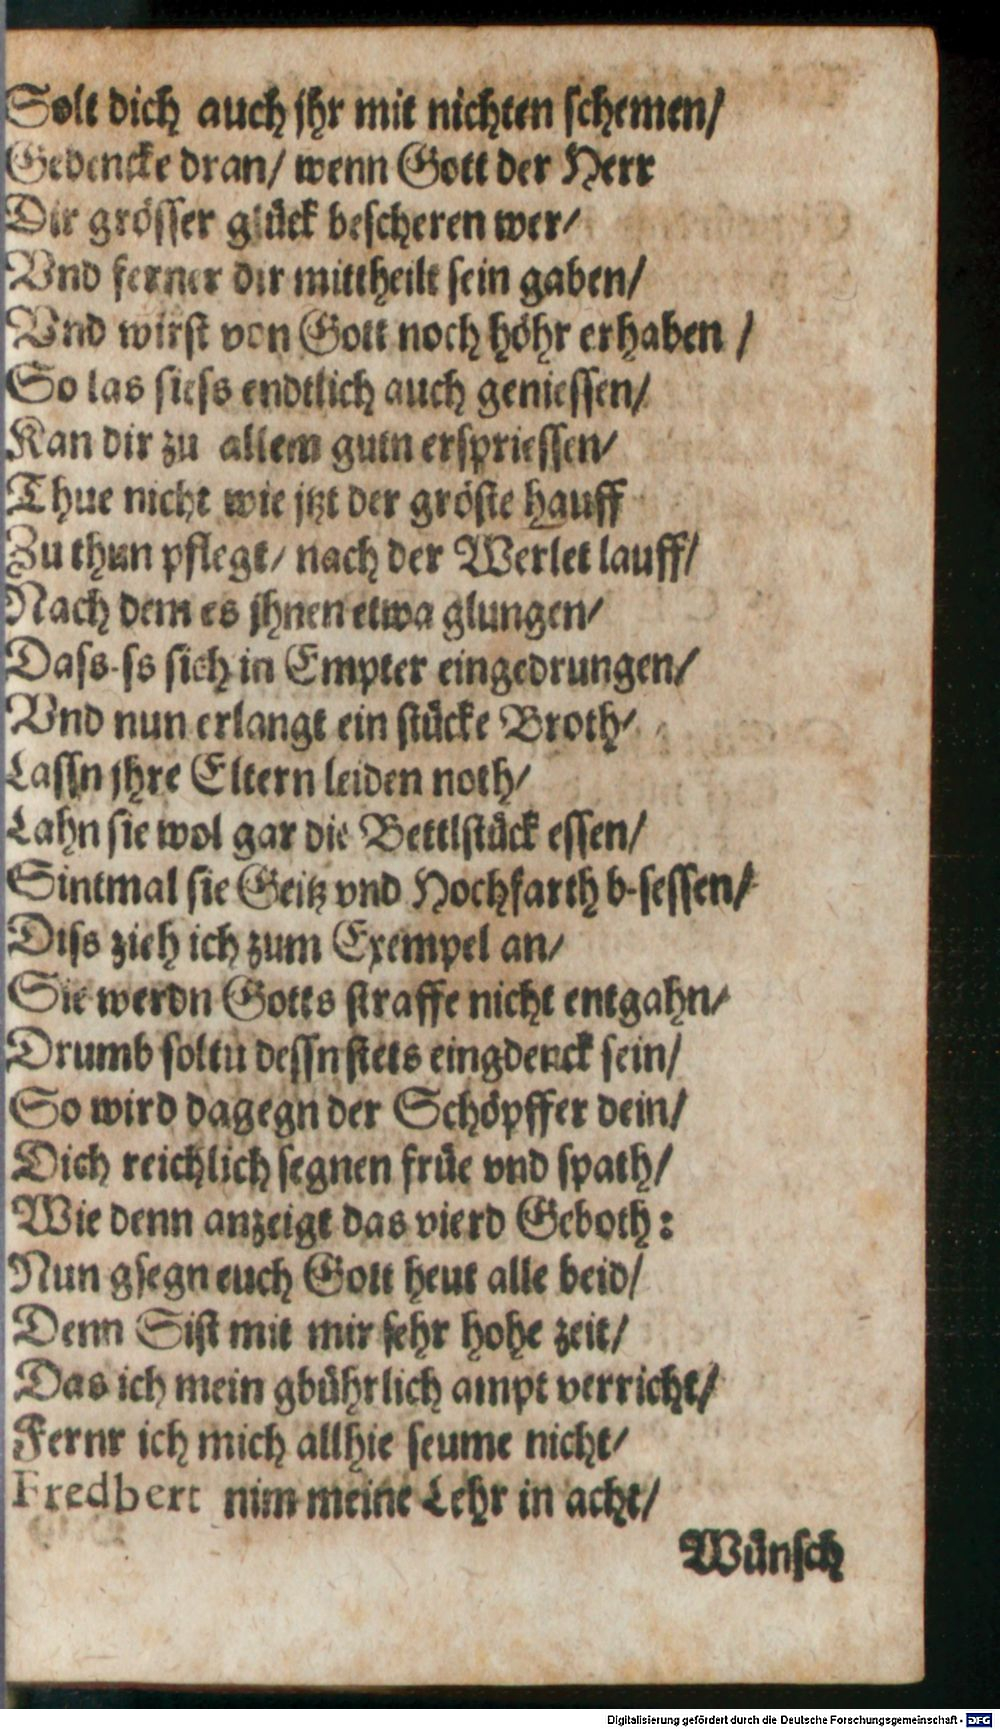 Solt dich auch jhr mit nichten schemen/
Gedencke dran/ wenn Gott der Herr
Dir grösser glück bescheren wer/
Vnd ferner dir mittheilt sein gaben/
Vnd wirst von Gott noch höhr erhaben /
So las siess endtlich auch geniessen/
Kan dir zu allem gutn erspriessen/
Thue nicht wie jtzt der gröste hauff
Zu thun pflegt/ nach der Werlet lauff/
Nach dem es jhnen etwa glungen/
Dass-ss sich in Empter eingedrungen/
Vnd nun erlangt ein stücke Broth/
Lassn jhre Eltern leiden noth/
Lahn sie wol gar die Bettlstück essen/
Sintmal sie Geitz vnd Hochfarth b-sessen/
Diss zieh ich zum Exempel an/
Sie werdn Gotts straffe nicht entgahn/
Drumb soltu dessn stets eingdenck sein/
So wird dagegn der Schöpffer dein/
Dich reichlich segnen früe vnd spath/
Wie denn anzeigt das vierd Geboth:
Nun gsegn euch Gott heut alle beid/
Denn Sist mit mir sehr hohe zeit/
Das ich mein gbührlich ampt verricht/
Fernr ich mich allhie seume nicht/
Fredbert nim meine Lehr in acht/
Wünsch
Digitalisierung gefördert durch die Deutsche Forschungsgemeinschaft - DFG